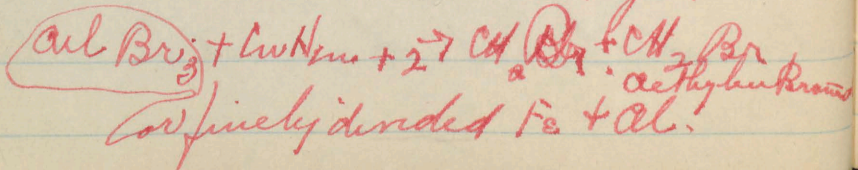 Al Br3 + CnH2n+2 → CH2 Br + CH2 Br
Aethylen Bromid
(or finely divided Fe + Al.